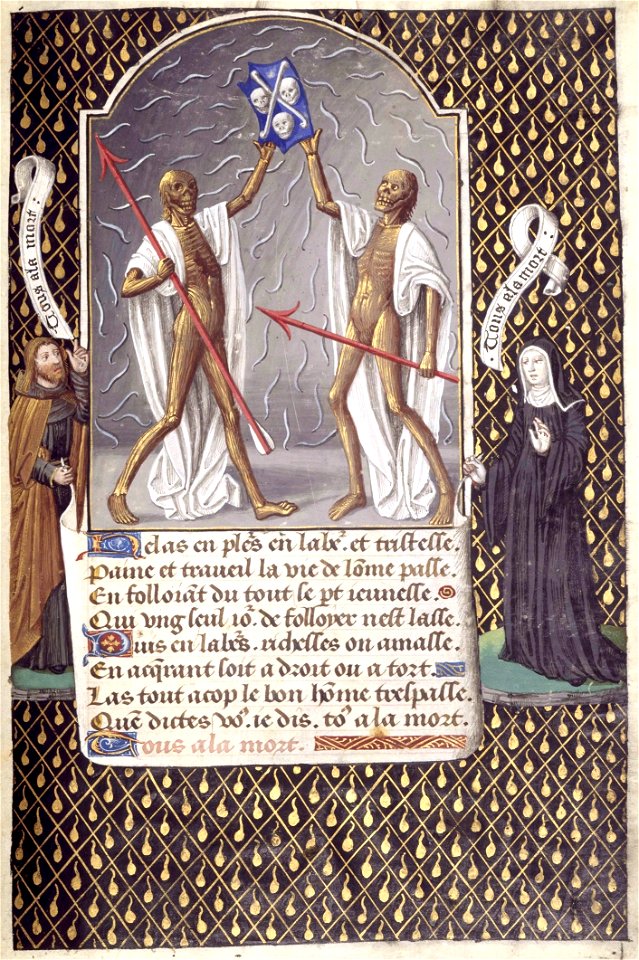 Tous a la mort.
Tous a la mort.
Helas en ples. en labr. et tristesse.
Paine et traueil la vie de lome passe.
En folloiant du tout se pt ieunesse.
Qui ung seul ior. de folloyer nest lasse.
Puis en labrs. richesses on amasse.
En acqrant soit a droit ou a tort.
Las tout acop le bon home trespasse.
Que dictes vos. ie dis. tos a la mort.
Tous a la mort.